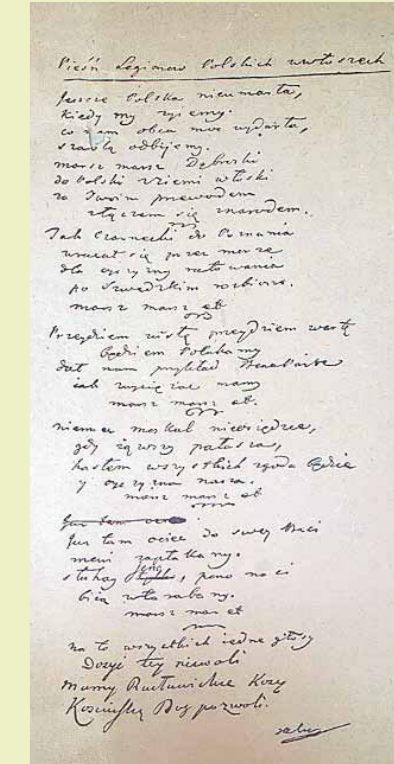 Pieśń Legionow Polskich wewłoszech
Jeszcze Polska nieumarła,
kiedy my żyiemy.
co nam obca moc wydarła,
szablą odbijemy.
marsz marsz Dąbroski
do Polski zziemi włoski
za Twoim przewodem
złączem się znarodem.
Jak Czarnecki do Poznania
wracał się przez morze
dla oyczyzny ratowania
po Szwedzkim rozbiorze.
marsz marsz etc
Przeydziem wisłę przeydziem wartę
będziem Polakamy
dał nam przykład Bonaparte
jak zwyciężać mamy
marsz marsz etc.
niemiec moskal nieosiędzie,
gdy iąwszy pałasza,
hasłem wszystkich zgoda będzie
y oyczyzna nasza.
marsz marsz etc
Już tam ociec
Już tam ociec do swey Basi
mówi zapłakany.
słuchay jeno, pono nasi
biią wtarabany.
marsz mars etc
na to wszystkich iedne głosy
Dosyć tey niewoli
mamy Racławickie Kosy
Kosciuszkę Bog pozwoli.